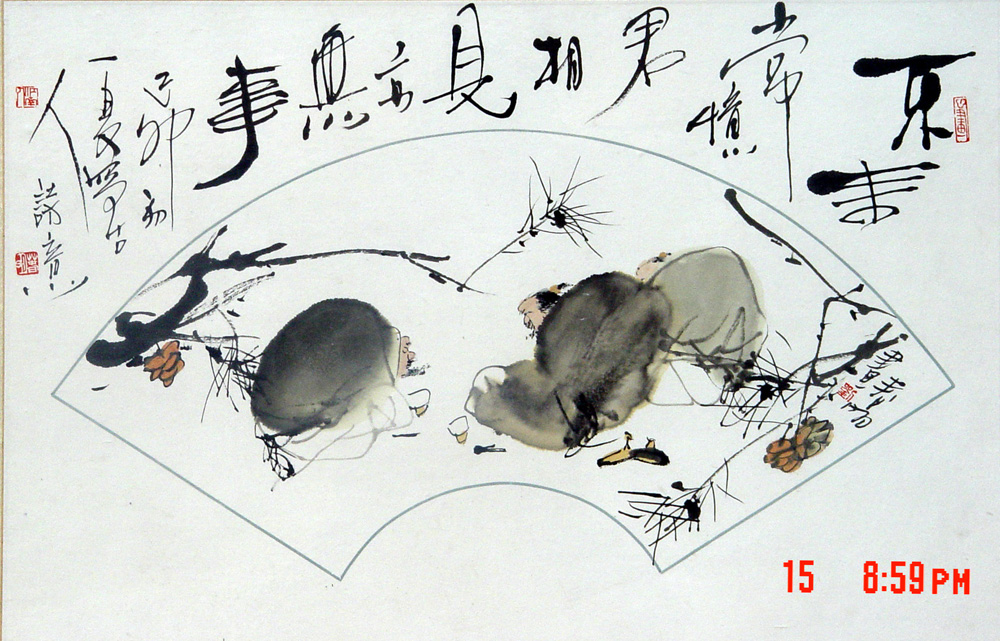 不来
常憶
君
相
見
亦
無
事
己卯初
夏寫古
人詩意
15 8:59PM